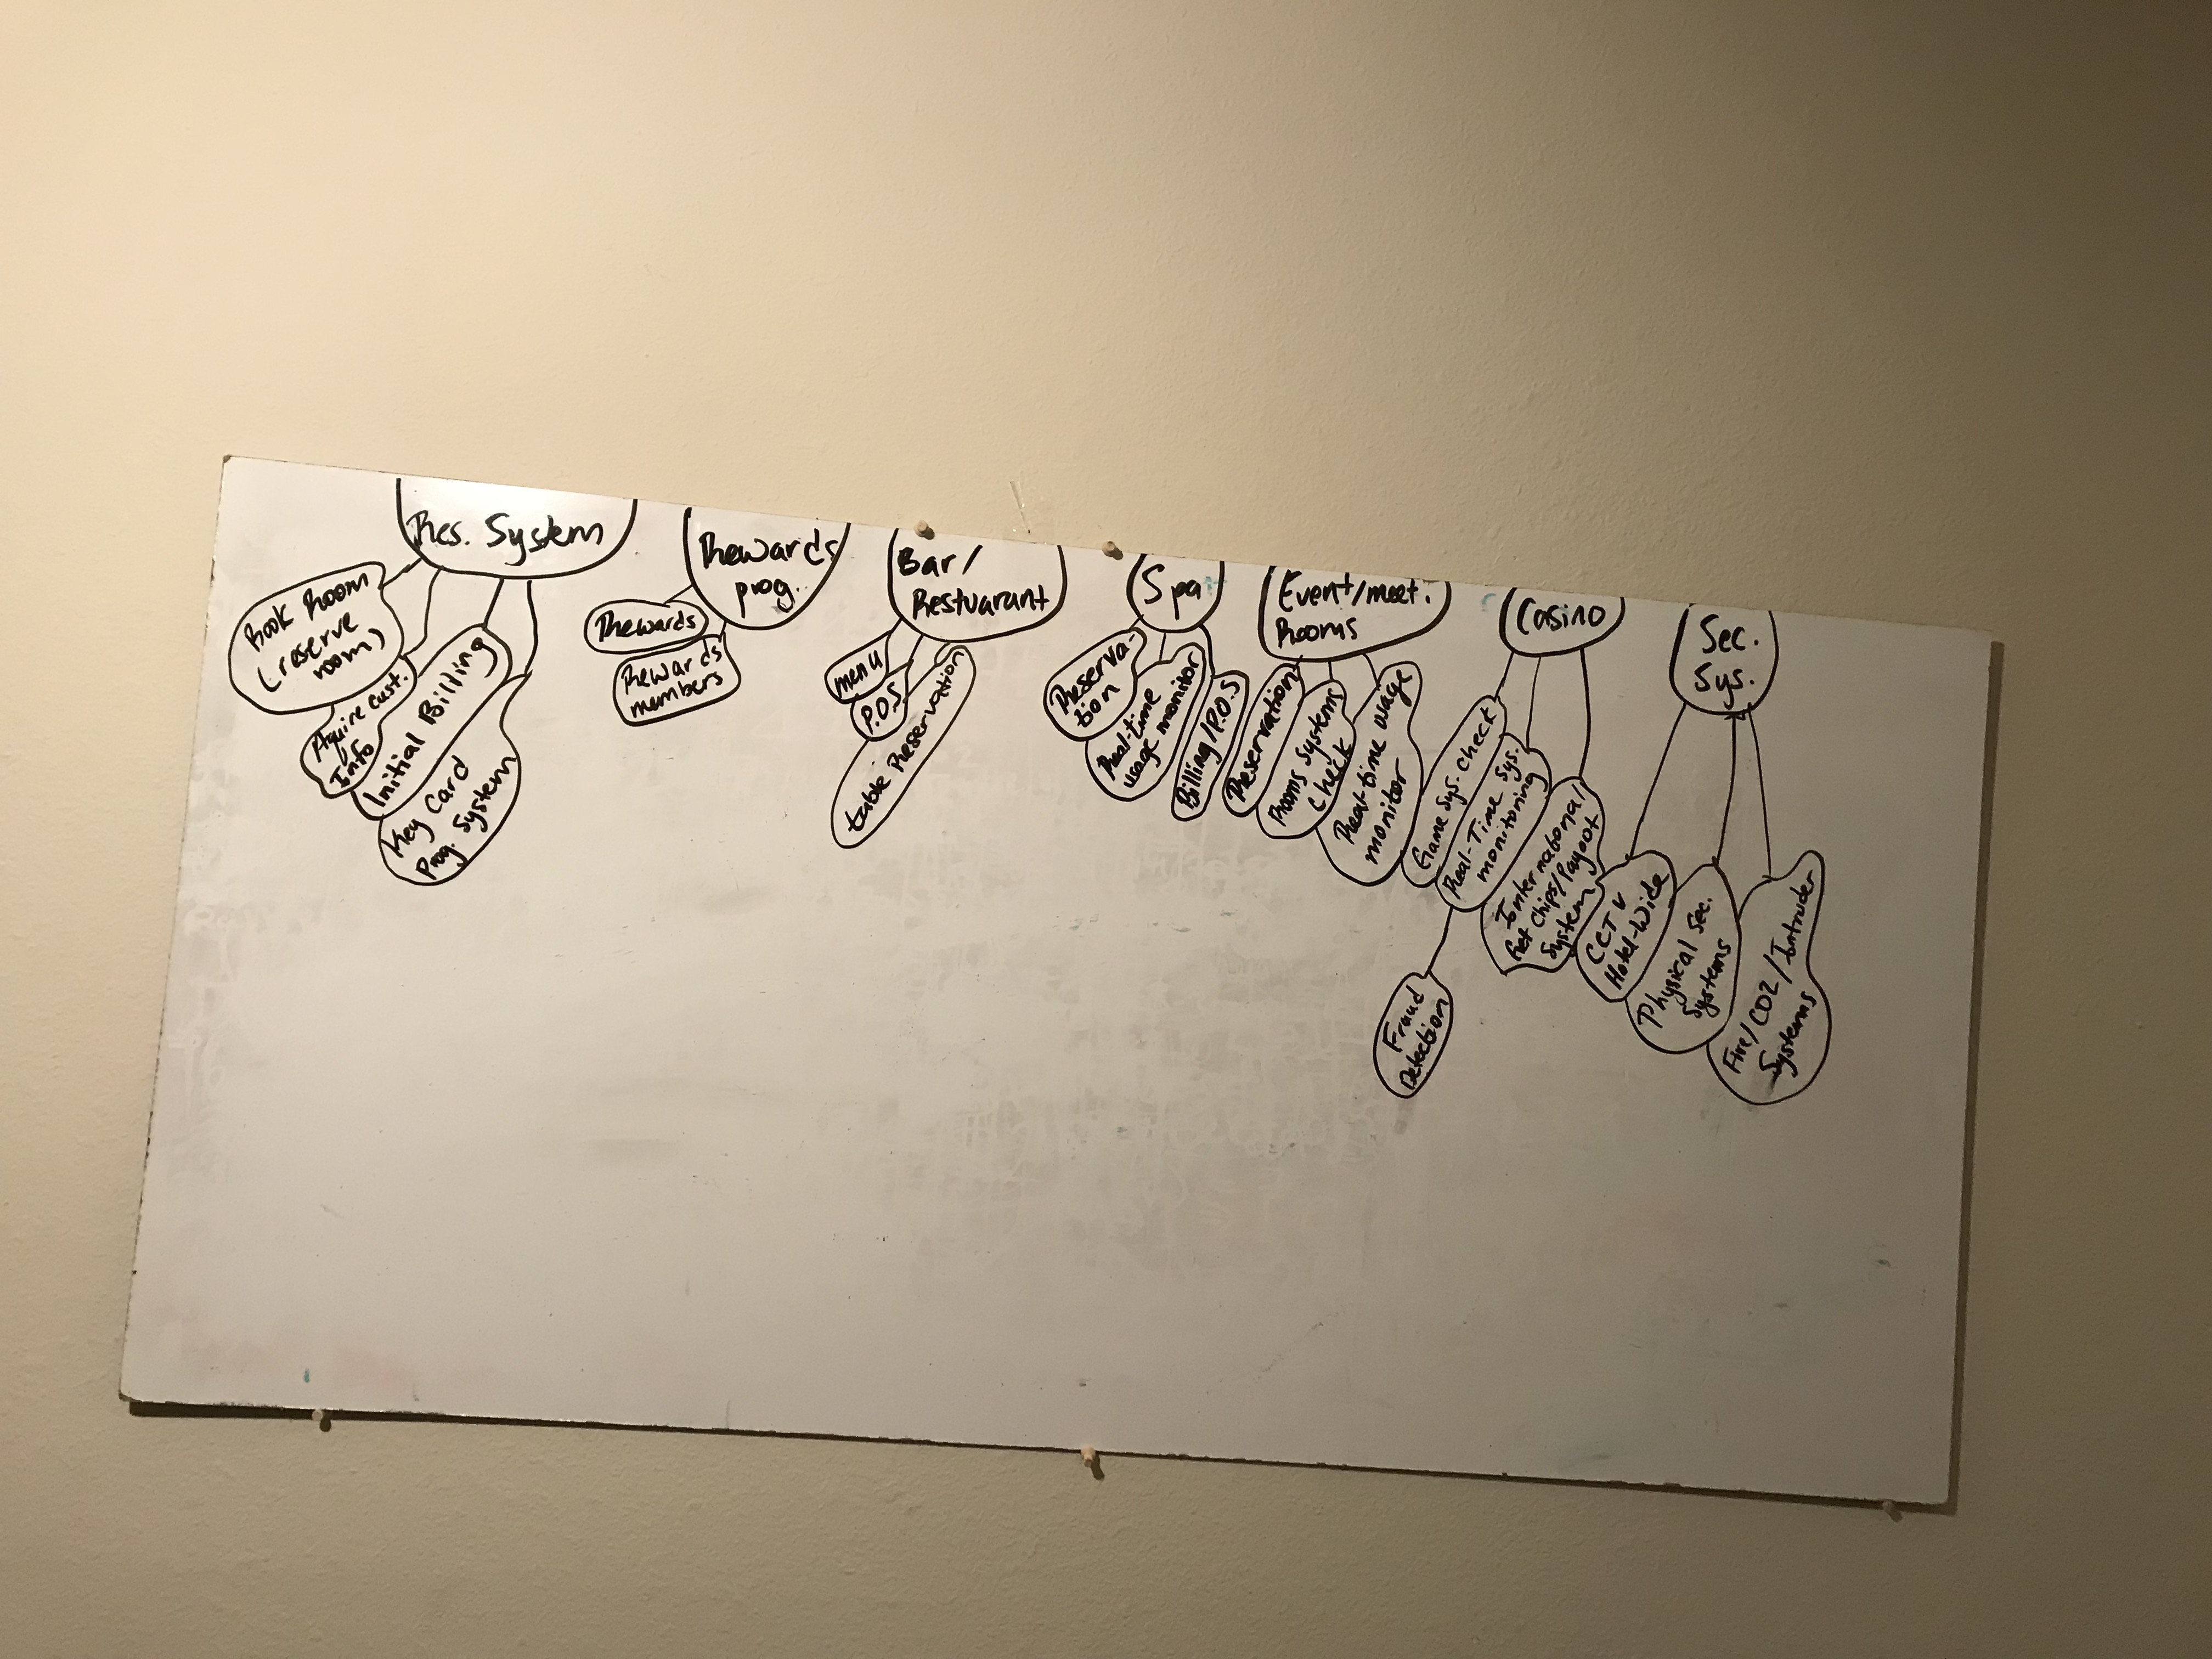 Res. System
Book Room
(reserve
room)
Aquire cust.
Info
Initial Billing
Key Card
Prog. System
Rewards
prog.
Rewards
Rewards
members
Bar/
Restuarant
menu
P.O.S
table Reservation
Spa
Reserva-
tion
Real-time
usage monitor
Billing/P.O.S
Event/meet.
Rooms
Reservation
Rooms Systems
Check
Real-time usage
monitor
Casino
Game Sys. Check
Real-Time Sys.
monitoring
Fraud
Detection
International
Chips/Payout
System
Sec.
Sys.
CCTV
Hotel-Wide
Physical Sec.
Systems
Fire/CO2/Intruder
Systems